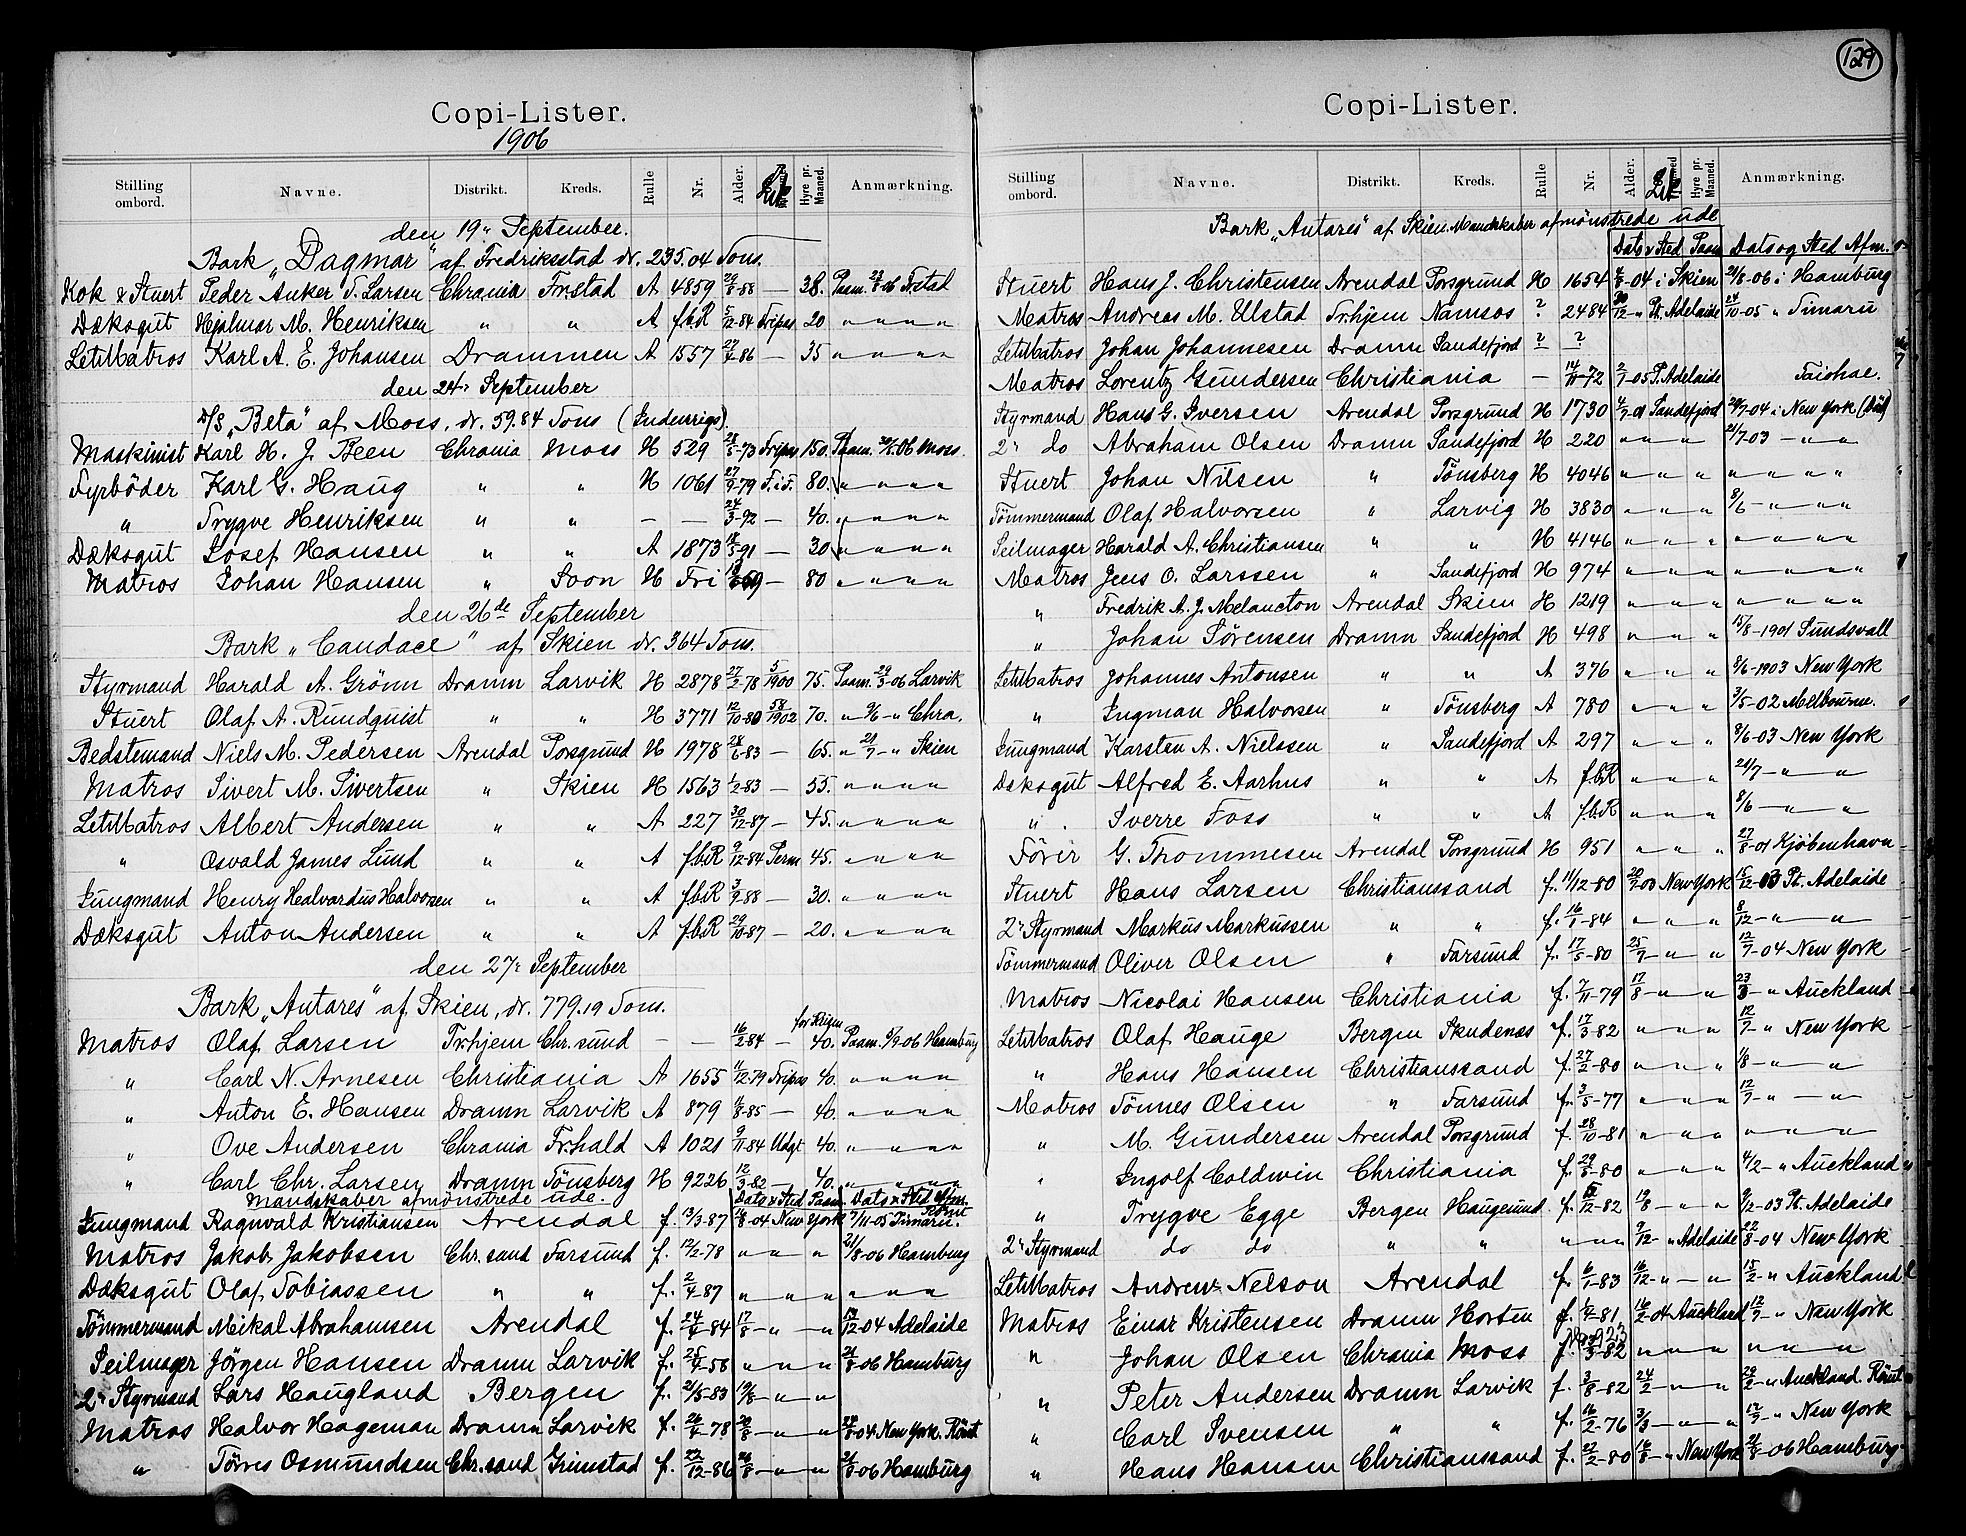 Copi-Lister.
1906
Stilling ombord. Navne. Distrikt. Kreds. Rulle Nr. Alder. Hyre pr. Maaned. Anmærkning.
den 19. September.
Bark „Dagmar" af Fredriksstad dr. 235.04 Tons.
Kok & Stuert Peder Anker T. Larsen Chrania Frstad A 4859 29/8-88 — 38. Paam. 06 Frstad
Dæksgut Hjalmar M. Henriksen " " A fbR 5/12-84 Fripas 20 " " " "
LetMatros Karl A. E. Johansen Drammen A 1557 -86 — 35 " " " "
den 24. September
D/S „Beta" af Moss, dr. 59.84 Tons (Indenrigs)
Maskinist Karl H. J. Been Chrania Moss H 529 -73 Fripas 150. Paam. 06 Moss.
Fyrbøder Karl G. Haug " " H 1061 27/9-79 F.i.F. 80. " " " "
" Trygve Henriksen " " — — 24/3-92 — 40. " " " "
Dæksgut Josef Hansen " " A 1873 18/5-91 — 30 " " " "
Matros Johan Hansen " Soon H Fri 69 — 80 " " " "
den 26de September
Bark „Candace" af Skien dr. 364 Tons.
Styrmand Harald A. Grönn Dramn Larvik H 2878 27/2-78 5/1900 75. Paam. 29/3-06 Larvik
Stuert Olaf A. Rundquist " " H 3771 12/10-80 58/1902 70. " 9/6 - " Chra.
Bedstemand Niels M. Pedersen Arendal Porsgrund H 1978 28/6-83 — 65. " 21/7 - " Skien
Matros Sivert M. Sivertsen " Skien H 1563 1/2-83 — 55. " " " "
LetMatros Albert Andersen " " A 227 30/12-87 — 45. " " " "
" Osvald James Lund " " A fbR 9/12-84 Perm 45. " " " "
Jungmand Henry Halvardus Halvorsen " " A fbR 3/9-88 — 30. " " " "
Dæksgut Anton Andersen " " A fbR 29/10-87 — 20. " " " "
den 27. September
Bark „Antares" af Skien, dr. 779.19 Tons.
Matros Olaf Larsen Tr.hjem Chr.sund — — 16/2-84 — 40. Paam. 5/9-06 Hamburg
" Carl N. Arnesen Christiania A 1655 11/12-79 Fripas 40. " " " "
" Anton E. Hansen Dramn Larvik A 879 -85 — 40. " " " "
" Ove Andersen Chrania Fr.hald A 1021 9/11-84 Udgt 40. " " " "
" Carl Chr. Larsen Dramn Tönsberg H 9226 12/3-82 — 40. " " " "
Mandskaber afmönstrede ude. Dato & Sted Paam. Dato & Sted Afm.
Jungmand Ragnvald Kristiansen Arendal f. 13/3-87 16/8-04 New York 7/11-05 Timaru. Römt
Matros Jakob Jakobsen Chr.sand Farsund f. 12/2-78 " " " 21/8-06 Hamburg
Dæksgut Olaf Tobiassen " " f. 2/4-87 " " " " " "
Tömmermand Mikal Abrahamsen Arendal f. 24/4-84 17/8 - " - " 12-04 Adelaide
Seilmager Jörgen Hansen Dramn Larvik f. 25/4-58 " " " 21/8-06 Hamburg
2. Styrmand Lars Haugland Bergen f. 21/5-83 19/8 - " "
Matros Halvor Hageman Dramn Larvik f. 26/4-78 20/8 - " " 8-04 New York. Römt
" Törres Osmundsen Chr.sand Grimstad f. 12-86 /8 - " " 21/8-06 Hamburg
129
Copi-Lister.
Stilling ombord. Navne. Distrikt. Kreds. Rulle Nr. Alder. Hyre pr. Maaned. Anmærkning.
Bark „Antares" af Skien Mandskaber afmönstrede ude
Dato & Sted Paam Dato og Sted Afm.
Stuert Hans J. Christensen Arendal Porsgrund H 1654 8-04 i Skien 21/8-06 i Hamburg
Matros Andreas M. Ulstad Tr.hjem Namsos ? 2484 30/12 - " Pt. Adelaide 24/10-05 " Timaru
LetMatros Johan Johannesen Dramn Sandefjord ? ?
Matros Lorentz Gundersen Christiania — 14/11-72 2/7-05 P. Adelaide Taiohae.
Styrmand Hans G. Iversen Arendal Porsgrund H 1730 4/7-01 Sandefjord 7-04 i New York (Död)
2. do Abraham Olsen Dramn Sandefjord H 220 " " " 21/7-03 - " "
Stuert Johan Nilsen " Tönsberg H 4046 " " " " " " "
Tömmermand Olaf Halvorsen " Larvig H 3830 " " " 8/6 - " "
Seilmager Harald A. Christiansen " " H 4146 " " " " " "
Matros Jens O. Larssen " Sandefjord H 974 " " " " " " "
" Fredrik A. J. Melancton Arendal Skien H 1219 " " " " " " "
" Johan Sörensen Dramn Sandefjord H 498 " " " 15/8-1901 Sundsvall
LetMatros Johannes Antonsen " " A 376 " " " 8/6-1903 New York
" Ingman Halvorsen " Tönsberg A 780 " " " 3/5-02 Melbourne.
Jungmand Karsten A. Nielssen " Sandefjord A 297 " " " 8/6-03 New York
Dæksgut Alfred E. Aarhus " " A fbR " " " 21/7 - " "
" Sverre Foss " " A fbR " " " 8/6 - " "
Förer G. Thommesen Arendal Porsgrund H 951 " " " 27/8-01 Kjöbenhavn
Stuert Hans Larsen Christianssand f. 11/12-80 -00 New York 15/12-03 Pt. Adelaide
2. Styrmand Markus Markussen " " f. 16/1-84 " " " 8/12 - " "
Tömmermand Oliver Olsen " Farsund f. 17/5-80 25/7 - " " 12/7-04 New York
Matros Nicolai Hansen Christiania f. 7/11-79 17/8 - " " 23/3 - " Auckland
LetMatros Olaf Hauge Bergen Skudenæs f. 17/3-82 " " " 12/7 - " New York
" Hans Hansen Christianssand f. 27/2-80 " " " 1/8 - " "
Matros Tönnes Olsen " Farsund f. 3/5-77 " " " 12/7 - " - "
" M. Gundersen Arendal Porsgrund f. 28/10-81 " " " " " "
" Ingolf Coldwin Christiania f. 29/5-80 " " " 4/2 - " Auckland
" Trygve Egge Bergen Haugesund f. 5/12-82 19/8 - " " 9/12-03 Pt. Adelaide
2. Styrmand do do " " " " " 9/12 - " Adelaide 22/8-04 New York
LetMatros Andrew Nelson Arendal f. 6/1-83 16/12 - " - " 15/2 - " Auckland
Matros Einar Kristensen Dramn Horten f. -81 16/2-04 Auckland 12/7 - " New York
" Johan Olsen Chrania Moss f. -82 " " " " " "
" Peter Andersen Dramn Larvik f. 3/8-82 24/2 - " " 29/2 - " Auckland Römt
" Carl Svensen " " f. 16/2-76 3/3 - " - " 12/7 - " New York
" Hans Hansen Christianssand f. 22/2-80 16/8 - " New York 21/8-06 Hamburg